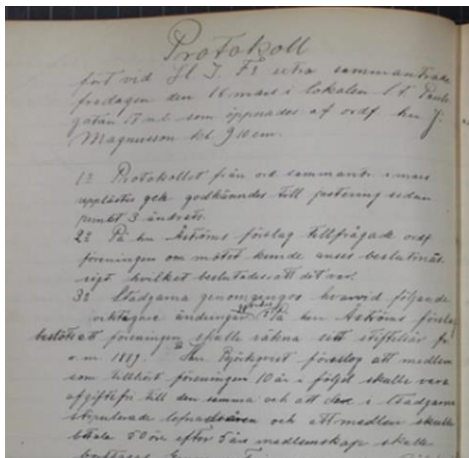 Protokoll
fört vid St J. Fs extra sammanträde
fredagen den 16 mars i lokalen St Pauls
gatan 17 som öppnades af ordf herr J.
Magnusson kl 9
1º Protokollet från ord sammantr i mars
upplästes och godkändes till justering sedan
punkt 3 ändrats.
2º På herr Åströms förslag tillfrågade ordf
föreningen om mötet kunde anses beslutmäs
sigt hvilket beslutades att det var.
3º Stadgarna genomgingos hvarvid följande
viktigare ändringar På herr Åströms förslag
beslöts att föreningen skulle räkna sitt stiftelseår fr
o.m. 1889. Herr Björkqvist föreslog att medlem
som tillhört föreningen 10 år i följd skulle vara
afgiftsfri till den samma och att den i stadgarna
stipulerade och att medlem skulle
betala 50 öre efter 5 års medlemskap skulle